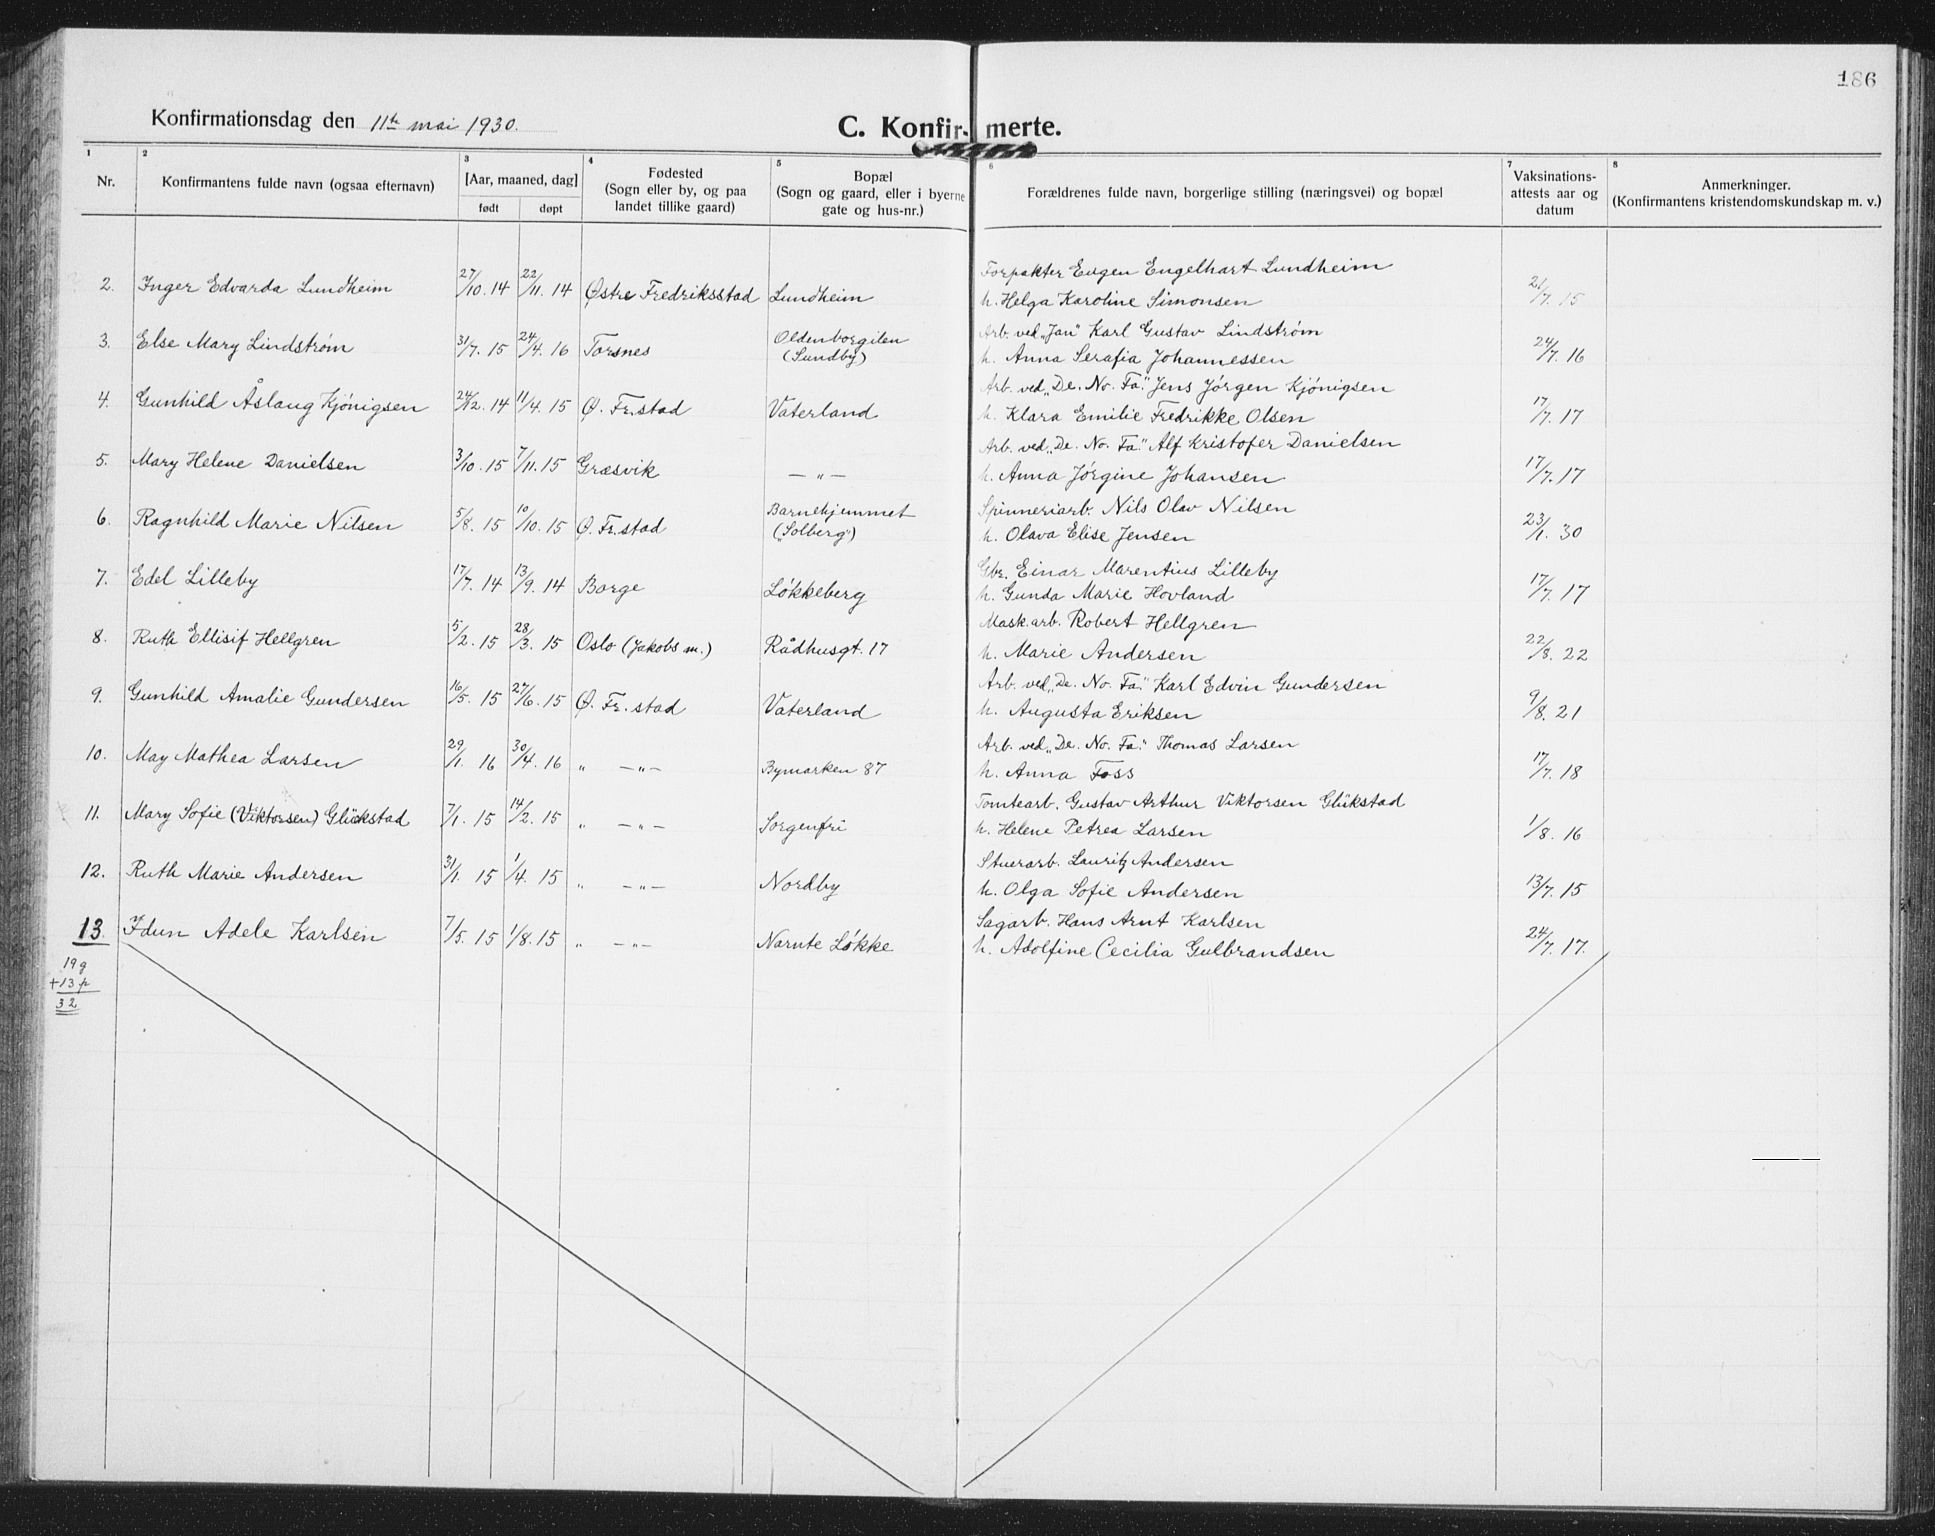 186
Konfirmationsdag den 11te mai 1930.
C. Konfirmerte.
1 2 3 4 5 6 7 8
Nr.
Konfirmantens fulde navn (ogsaa efternavn)
[Aar, maaned, dag]
født døpt
Fødested
(Sogn eller by, og paa
landet tillike gaard)
Bopæl
(Sogn og gaard, eller i byerne
gate og hus-nr.)
Forældrenes fulde navn, borgerlige stilling (næringsvei) og bopæl
Vaksinations-
attests aar og
datum
Anmerkninger.
(Konfirmantens kristendomskundskap m. v.)
Forpakter Eugen Engelhart Lundheim
2. Inger Edvarda Lundheim 27/10. 14 22/11. 14 Østre Fredriksstad Lundheim h. Helga Karoline Simonsen 21/7. 15
Oldenborgilen Arb. ved „Jan" Karl Gustav Lindstrøm
3. Else Mary Lindstrøm 31/7. 15 24/4. 16 Torsnes (Sundby) h. Anna Serafia Johannessen 24/7. 16
Arb. ved „De. No. Fa." Jens Jörgen Kjönigsen
4. Gunhild Åslaug Kjönigsen 24/12. 14 11/4. 15 Ø. Fr.stad Vaterland h. Klara Emilie Fredrikke Olsen 17/7. 17
Arb. ved „De. No. Fa." Alf Kristofer Danielsen
5. Mary Helene Danielsen 3/10. 15 7/11. 15 Græsvik — „ — h. Anna Jörgine Johansen 17/7. 17
Barnehjemmet Spinneriarb. Nils Olav Nilsen
6. Ragnhild Marie Nilsen 5/8. 15 10/10. 15 Ø. Fr.stad („Solberg") h. Olava Elise Jensen 23/1. 30
Gbr. Einar Marentius Lilleby
7. Edel Lilleby 17/7. 14 13/9. 14 Borge Løkkeberg h. Gunda Marie Hovland 17/7. 17
Mask.arb. Robert Hellgren
8. Ruth Ellisif Hellgren 5/2. 15 28/3. 15 Oslo (Jakobs m.) Rådhusgt. 17 h. Marie Andersen 22/8. 22
Arb. ved „De. No. Fa." Karl Edvin Gundersen
9. Gunhild Amalie Gundersen 16/5. 15 27/6. 15 Ø. Fr. stad Vaterland h. Augusta Eriksen 9/8. 21
Arb. ved „De. No. Fa." Thomas Larsen
10. May Mathea Larsen 29/1. 16 30/4. 16 „ — „ — Bymarken 87 h. Anna Foss 17/7. 18
Tomtearb. Gustav Arthur Viktorsen Glükstad
11. Mary Sofie (Viktorsen) Glückstad 7/1. 15 14/2. 15 „ — „ — Sorgenfri h. Helene Petrea Larsen 1/8. 16
Stuerarb. Lauritz Andersen
12. Ruth Marie Andersen 31/1. 15 1/4. 15 „ — „ — Nordby h. Olga Sofie Andersen 13/7. 15
Sagarb. Hans Arnt Karlsen
13. Idun Adele Karlsen 7/5. 15 1/8. 15 „ — „ — Narnte Løkke h. Adolfine Cecilia Gulbrandsen 24/7. 17.
19 g
+13 p
32